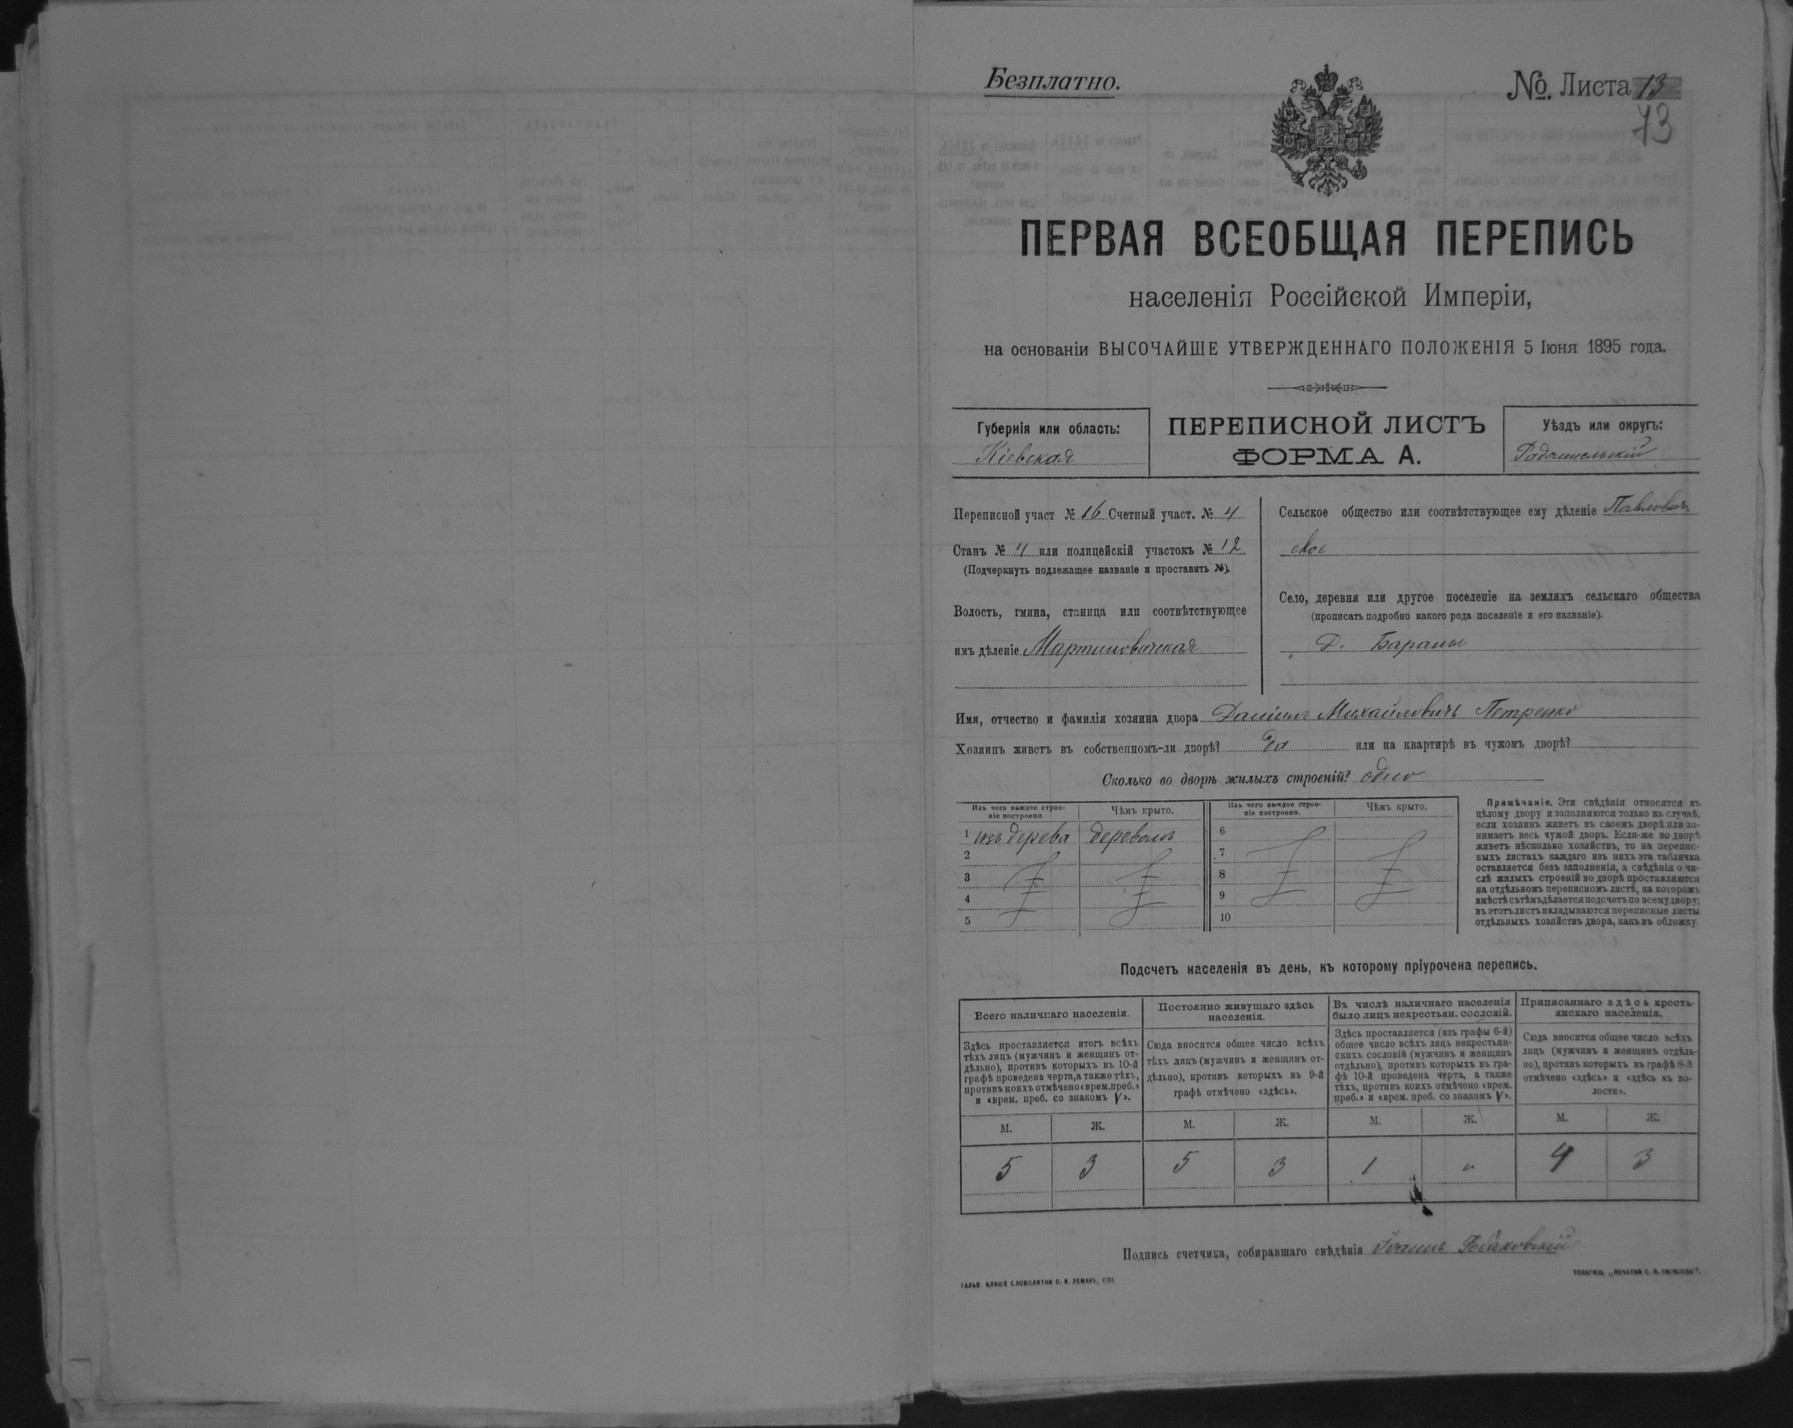 Безплатно.
№. Листа 13
73
ПЕРВАЯ ВСЕОБЩАЯ ПЕРЕПИСЬ
населенія Россійской Имперіи,
на основаніи ВЫСОЧАЙШЕ УТВЕРЖДЕННАГО ПОЛОЖЕНІЯ 5 Іюня 1895 года.
Губернія или область:
Кіевская
ПЕРЕПИСНОЙ ЛИСТЪ
ФОРМА А.
Уѣздъ или округъ:
Радомысльскій
Переписной участ № 16 Счетный участ. № 4
Станъ № 4 или полицейскій участокъ № 12
(Подчеркнуть подлежащее названіе и проставить №).
Волость, гмина, станица или соотвѣтствующее
имъ дѣленіе Мартиновичская
Сельское общество или соотвѣтствующее ему дѣленіе Павлович
ское
Село, деревня или другое поселеніе на земляхъ сельскаго общества
(прописать подробно какого рода поселеніе и его названіе).
Д. Бараны
Имя, отчество и фамилія хозяина двора Даніилъ Михайловичъ Петренко
Хозяинъ живетъ въ собственномъ-ли дворѣ? да или на квартирѣ въ чужомъ дворѣ?
Сколько во дворѣ жилыхъ строеній? одно
Изъ чего каждое строе-
ніе построено.
Чѣмъ крыто.
Изъ чего каждое строе-
ніе построено.
Чѣмъ крыто.
1 изъ дерева деревомъ
2
3
4
5
6
7
8
9
10
Примѣчаніе. Эти свѣдѣнія относятся къ
цѣлому двору и заполняются только въ случаѣ,
если хозяинъ живетъ въ своемъ дворѣ или за-
нимаетъ весь чужой дворъ. Если-же во дворѣ
живетъ нѣсколько хозяйствъ, то на перепис-
ныхъ листахъ каждаго изъ нихъ эта табличка
оставляется безъ заполненія, а свѣдѣнія о чи-
слѣ жилыхъ строеній во дворѣ проставляются
на отдѣльномъ переписномъ листѣ, на которомъ
вмѣстѣ съ тѣмъ дѣлается подсчетъ по всему двору;
въ этотъ листъ вкладываются переписные листы
отдѣльныхъ хозяйствъ двора, какъ въ обложку.
Подсчетъ населенія въ день, къ которому пріурочена перепись.
Всего наличнаго населенія.
Здѣсь проставляется итогъ всѣхъ
тѣхъ лицъ (мужчинъ и женщинъ от-
дѣльно), противъ которыхъ въ 10-й
графѣ проведена черта, а также тѣхъ,
противъ коихъ отмѣчено «врем. преб.»
и «врем. преб. со знакомъ V».
Постоянно живущаго здѣсь
населенія.
Сюда вносится общее число всѣхъ
тѣхъ лицъ (мужчинъ и женщинъ от-
дѣльно), противъ которыхъ въ 9-й
графѣ отмѣчено «здѣсь».
Въ числѣ наличнаго населенія
было лицъ некрестьян. сословій.
Здѣсь проставляется (изъ графы 6-й)
общее число всѣхъ лицъ некрестьян-
скихъ сословій (мужчинъ и женщинъ
отдѣльно), противъ которыхъ въ гра-
фѣ 10-й проведена черта, а также
тѣхъ, противъ коихъ отмѣчено «врем.
преб.» и «врем. преб. со знакомъ V».
Приписаннаго здѣсь кресть-
янскаго населенія.
Сюда вносится общее число всѣхъ
лицъ (мужчинъ и женщинъ отдѣль-
но), противъ которыхъ въ графѣ 8-й
отмѣчено «здѣсь» и «здѣсь къ во-
лости».
М. Ж. М. Ж. М. Ж. М. Ж.
5 3 5 3 1 „ 4 3
Подпись счетчика, собиравшаго свѣдѣнія Іоаннъ
ГАЛЬВ. КЛИШЕ СЛОВОЛИТНИ О. И. ЛЕМАНЪ, СПБ.
ТОВАРИЩ. „ПЕЧАТНЯ С. П. ЯКОВЛЕВА“.